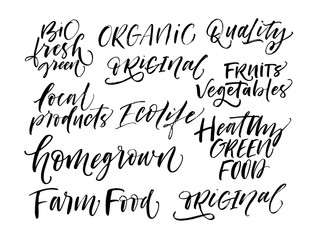 Bio
fresh
green
ORGANIC
Quality
ORIGINAL
FRUITS
Vegetables
local
products
Ecolife
Healthy
GREEN
FOOD
homegrown
Farm Food
ORIGINAL